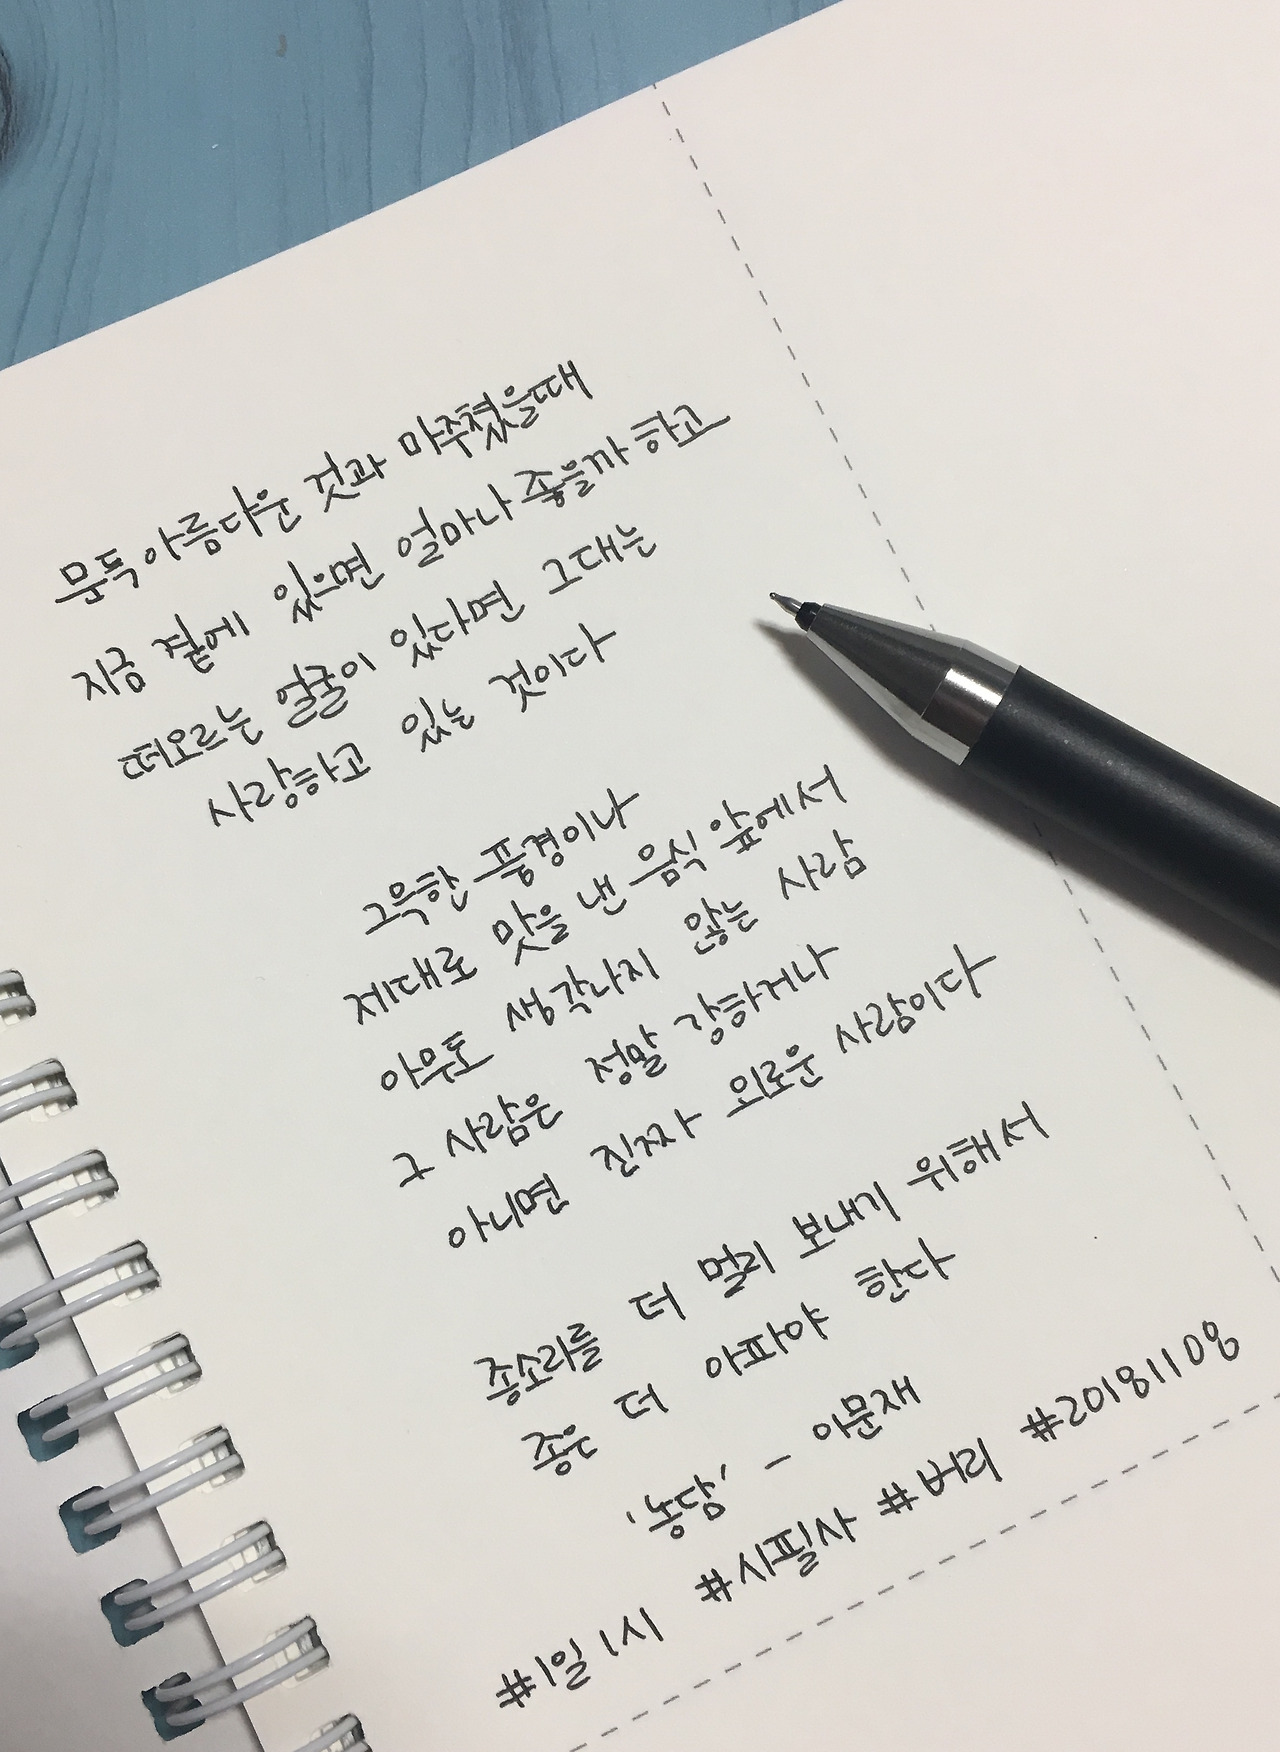 문득 아름다운 것과 마주쳤을때
지금 곁에 있으면 얼마나 좋을까 하고
떠오르는 얼굴이 있다면 그대는
사랑하고 있는 것이다
그윽한 풍경이나
제대로 맛을 낸 음식 앞에서
아무도 생각나지 않는 사람
그 사람은 정말 강하거나
아니면 진짜 외로운 사람이다
종소리를 더 멀리 보내기 위해서
종은 더 아파야 한다
'농담' - 이문재
#1일1시 #시필사 #버리 #20181108